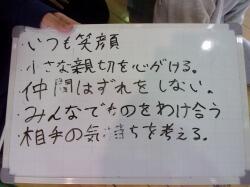 ・いつも笑顔
・小さな親切を心がける。
仲間はずれをしない。
・みんなでものをわけ合う
相手の気持ちを考える。